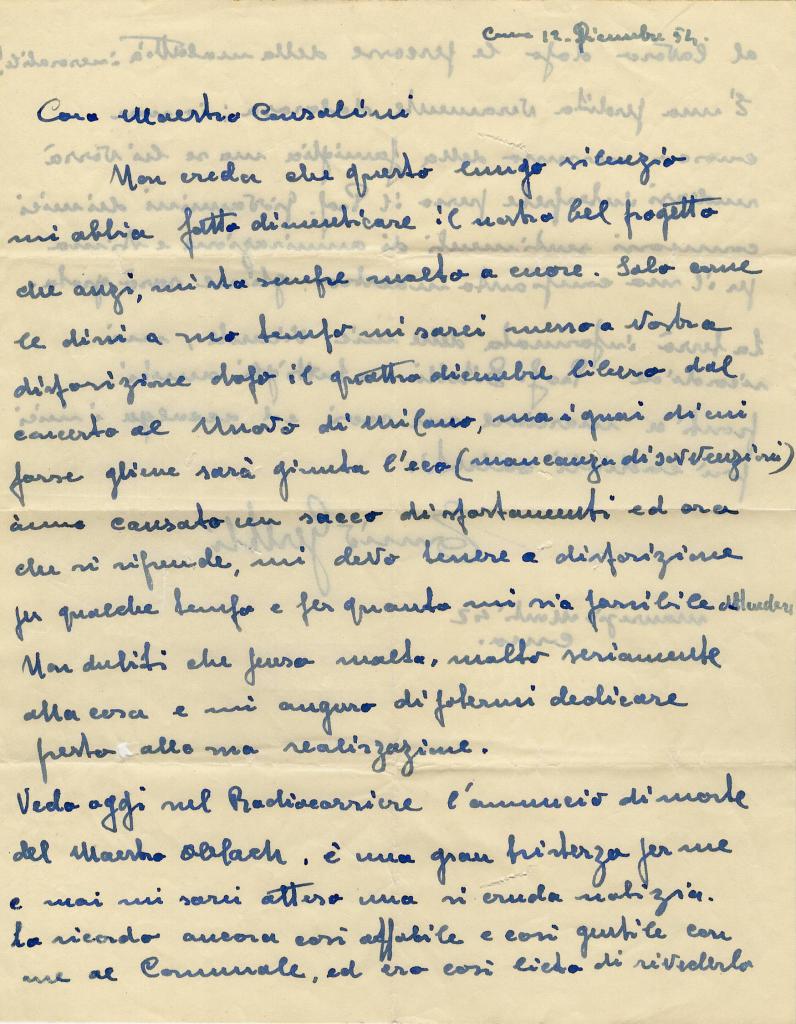 12. Dicembre 54.
Caro Maestro Cusolini
Non creda che questo lungo silenzio
mi abbia fatto dimenticare il nostro bel progetto
che anzi, mi sta sempre molto a cuore. Solo come
le dissi a suo tempo mi sarei messo a Vostra
disposizione dopo il quattro dicembre libero dal
concerto al Nuovo di Milano, ma i guai di cui
forse gliene sarà giunta l'eco (mancanza di sovvenzioni)
ànno causato un sacco di spostamenti ed ora
che si riprende, mi devo tenere a disposizione
per qualche tempo e per quanto mi sia possibile attendere
Non dubiti che penso molto, molto seriamente
alla cosa e mi auguro di potermi dedicare
presto alla sua realizzazione.
Vedo oggi sul Radiocorriere l'annuncio di morte
del Maestro Oblach, è una gran tristezza per me
e mai mi sarei atteso una sì cruda notizia.
Lo ricordo ancora così affabile e così gentile con
me al Comunale, ed ero così lieto di rivederlo